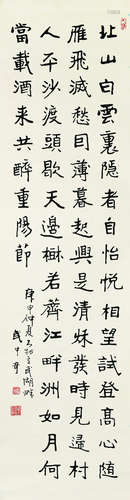 北山白雲裏隱者自怡悅相望試登高心隨
雁飛滅愁因薄暮起興是清秋發時見歸村
人平沙渡頭歇天邊樹若薺江畔洲如月何
當載酒來共醉重陽節
庚申仲夏湖畔
武中奇